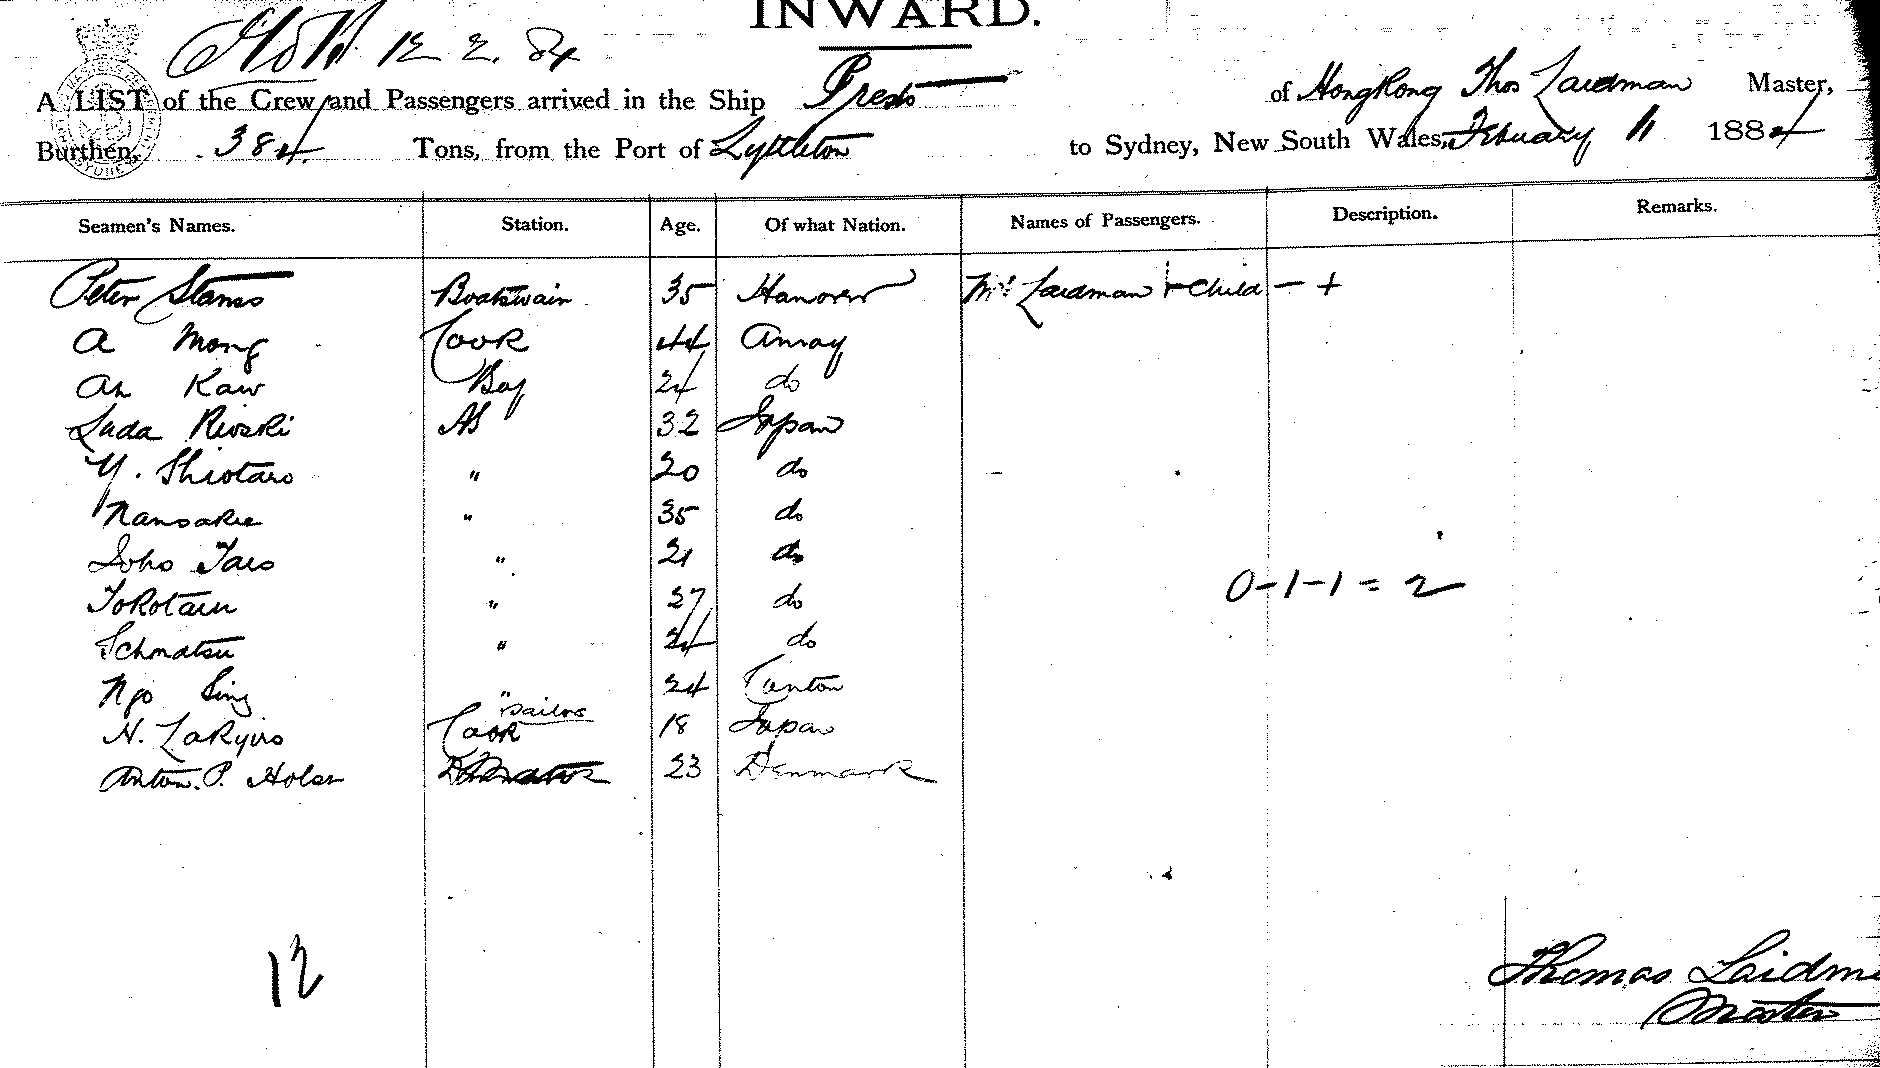 INWARD.
12 2. 84
A LIST of the Crew and Passengers arrived in the Ship Presto of HongKong Thos Laidman Master,
Burthen, 384 Tons, from the Port of Lyttleton to Sydney, New South Wales, February 11 1884
Seamen's Names. Station. Age. Of what Nation. Names of Passengers. Description. Remarks.
Peter Boatswain 35 Hanover Mrs Laidman + Child - +
A Mong Cook 44 Amoy
Ah Kaw Boy 24 do
AB 32 Japan
Y. Shiotaro " 20 do
" 35 do
" 21 do
" 27 do
" 24 do
0-1-1 = 2
Ngo Sing " 24 Canton
N. Sailors Cook 18 Japan
Anton. P. Holm 23 Denmark
12
Thomas Laidm
Master